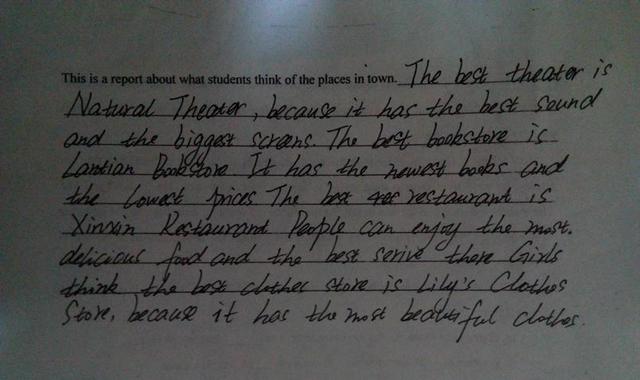 This is a report about what students think of the places in town. The best theater is
Natural Theater, because it has the best sound
and the biggest screens. The best bookstore is
Lantian Bookstore. It has the newest books and
the lowest prices The best restaurant is
Xinxin Restaurant People can enjoy the most.
delicious food and the best serive there Girls
think the best clothes store is Lily's Clothes
Store, because it has the most beautiful clothes.